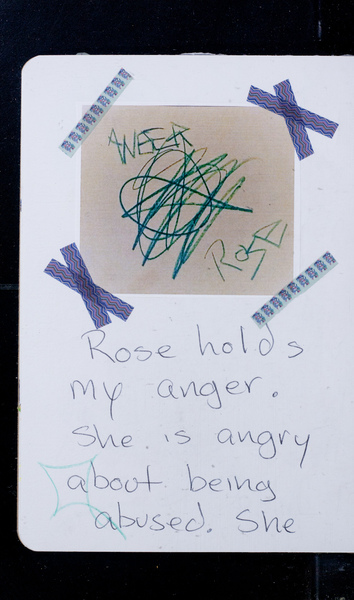 ANGER
ROSE
Rose holds
my anger.
She is angry
about being
abused. She